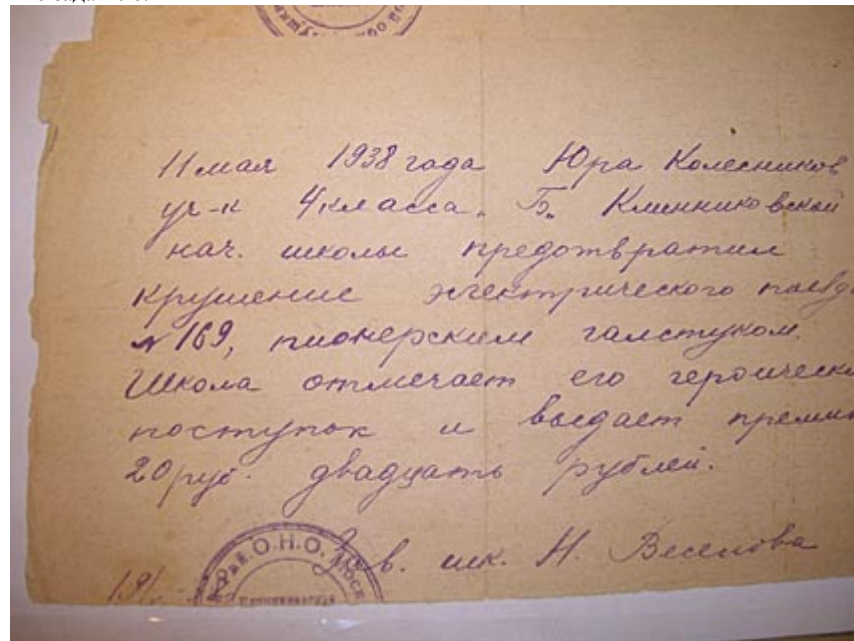 11 мая 1938 года Юра Колесников
уч-к 4 класса „Б„ Клинниковской
нач. школы предотвратил
крушение электрического поезд
№ 169, пионерским галстуком.
Школа отмечает его героически
поступок и выдает премию
20 руб. двадцать рублей.
Зав. шк. Н. Веселова
О.Н.О.